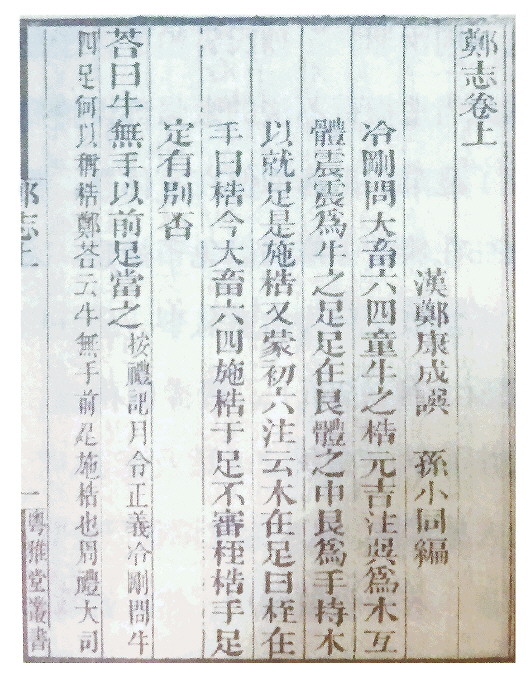 鄭志卷上
漢鄭康成譔　孫小同編
冷剛問大畜六四童牛之梏元吉注巽為木互
體震震為牛之足足在艮體之中艮為手持木
以就足是施梏又蒙初六注云木在足曰桎在
手曰梏今大畜六四施梏于足不審桎梏手足
定有別否
荅曰牛無手以前足當之按禮記月令正義冷剛問牛
四足何以稱梏鄭荅云牛無手前足施梏也周禮大司
鄭志上
一
粵雅堂叢書